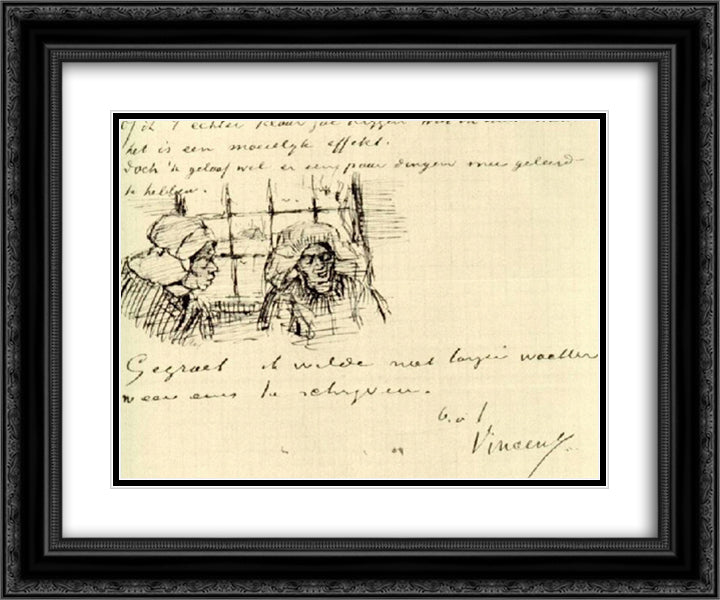 of ik 't echter klaar zal krijgen
het is een moeielijk effekt.
doch 'k geloof wel er een paar dingen mee geleerd
te hebben.
Gegroet ik wilde niet langer wachten
weer eens te schrijven.
Vincent